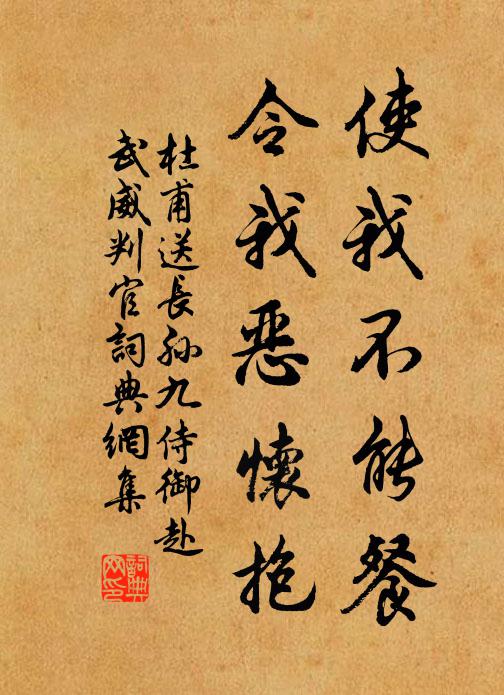 使我不能餐
令我惡懷抱
杜甫送長孫九侍御赴
武威判官詞典網集
詞典
网印